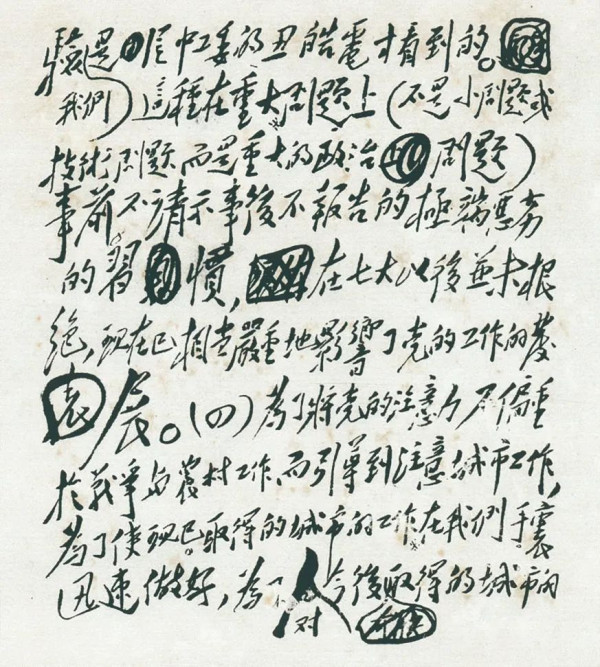 驗是從中工委的丑皓電才看到的。
我們)這種在重大問題上(不是小問題或
技術問題而是重大的政治問題)
事前不請示事後不報告的極端惡劣
的習慣,在七大以後並未根
絕,現在已相當嚴重地影響了黨的工作的發
展。(四)為了將党的注意力不偏重
於戰爭与農村工作,而引導到注意城市工作,
為了使現已取得的城市的工作在我們手裏
迅速做好,為了 對 今後取得的城市的